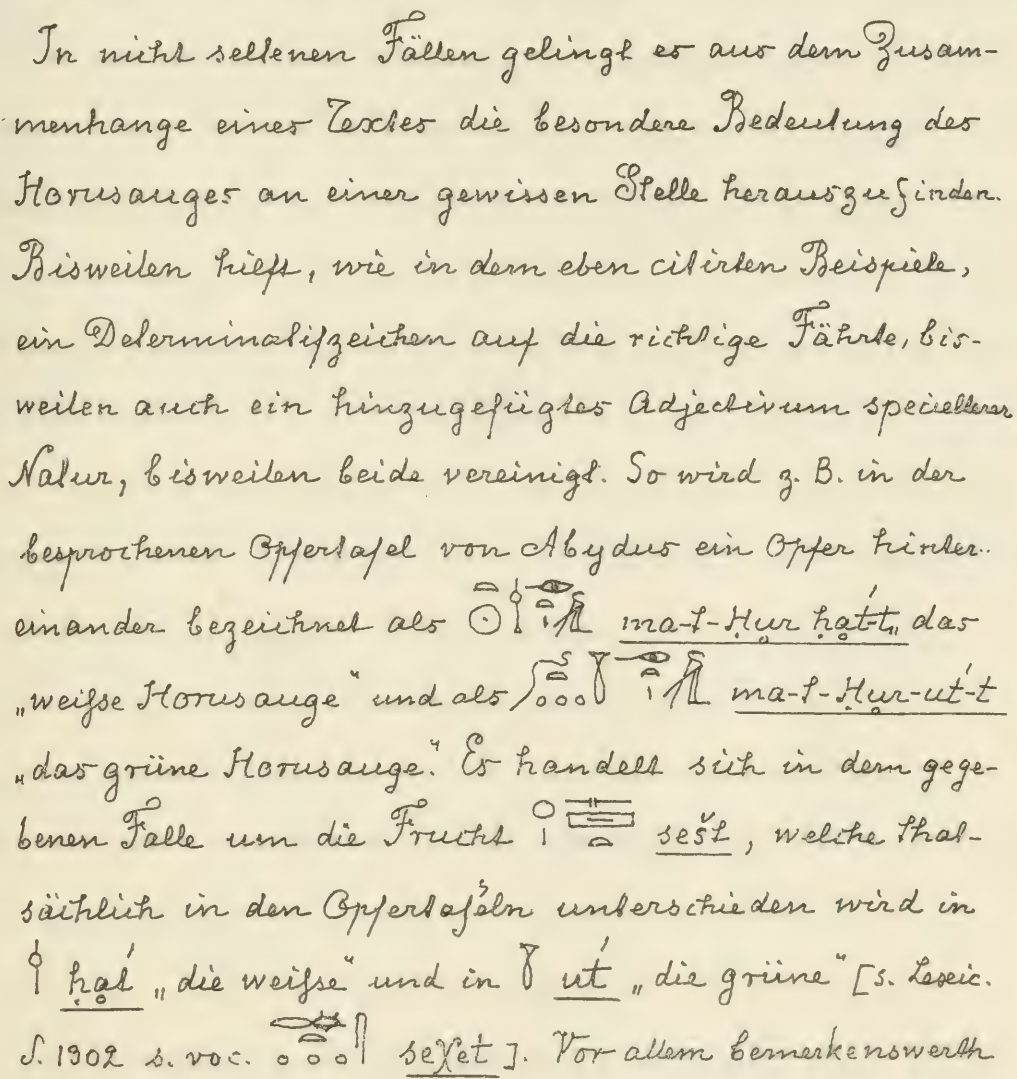 In nicht seltenen Fällen gelingt es aus dem Zusam-
menhange eines Textes die besondere Bedeutung des
Horusauges an einer gewissen Stelle herauszufinden.
Bisweilen hielft, wie in dem eben citirten Beispiele,
ein Determinatifzeichen auf die richtige Fährte, bis-
weilen auch ein hinzugefügtes Adjectivum speciellerer
Natur, bisweilen beide vereinigt. So wird z. B. in der
besprochenen Opfertafel von Abydus ein Opfer hinter-
einander bezeichnet als ma-t-Ḥur ḥat́-t „das
„weiſse Horusauge“ und als ma-t-Ḥur-ut́-t
„das grüne Horusauge.“ Es handelt sich in dem gege-
benen Falle um die Frucht sešt, welche that-
sächlich in den Opfertafeln unterschieden wird in
ḥat́ „die weiſse“ und in ut́ „die grüne“ [s. Lexic.
S. 1302 s. voc. seχet]. Vor allem bemerkenswerth